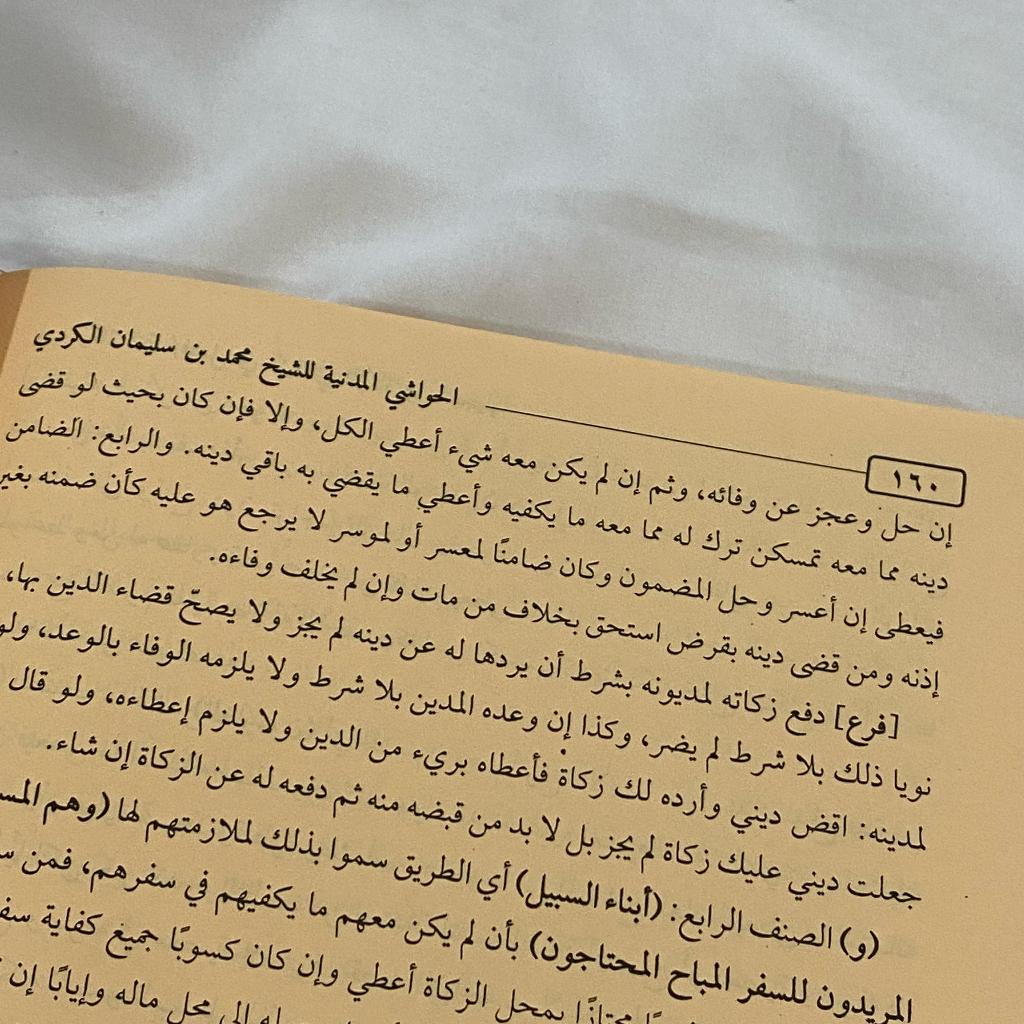 ١٦٠
الحواشي المدنية للشيخ محمد بن سليمان الكردي
إن حل وعجز عن وفائه، وثم إن لم يكن معه شيء أعطي الكل، وإلا فإن كان بحيث لو قضى
دينه مما معه تمسكن ترك له مما معه ما يكفيه وأعطي ما يقضي به باقي دينه. والرابع: الضامن
فيعطى إن أعسر وحل المضمون وكان ضامنًا لمعسر أو لموسر لا يرجع هو عليه كأن ضمنه بغير
إذنه ومن قضى دينه بقرض استحق بخلاف من مات وإن لم يخلف وفاءه.
[فرع] دفع زكاته لمديونه بشرط أن يردها له عن دينه لم يجز ولا يصحّ قضاء الدين بها،
نويا ذلك بلا شرط لم يضر، وكذا إن وعده المدين بلا شرط ولا يلزمه الوفاء بالوعد، ولو
لمدينه: اقض ديني وأرده لك زكاة فأعطاه بريء من الدين ولا يلزم إعطاءه، ولو قال
جعلت ديني عليك زكاة لم يجز بل لا بد من قبضه منه ثم دفعه له عن الزكاة إن شاء.
(و) الصنف الرابع: (أبناء السبيل) أي الطريق سموا بذلك لملازمتهم لها (وهم
المريدون للسفر المباح المحتاجون) بأن لم يكن معهم ما يكفيهم في سفرهم، فمن
مجتازًا بمحل الزكاة أعطي وإن كان كسوبًا جميع كفاية
له إلى محل ماله وإيابًا إن